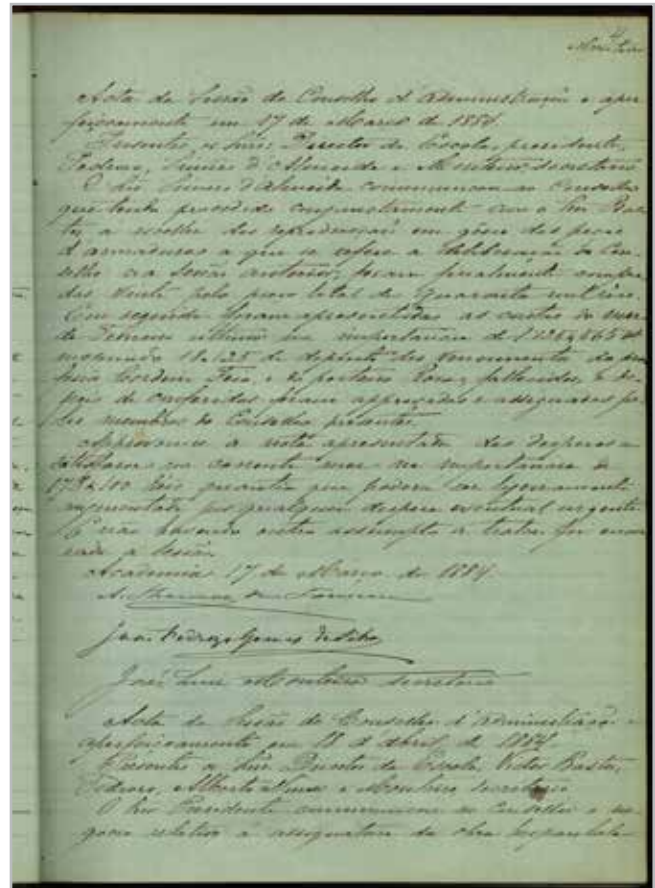 4
Monteiro
Acta da Sessão do Conselho d'Administração e aper
feiçoamento em 17 de Março de 1884.
Presentes os Snrs: Director da Escola, presidente,
Pedroso, Simões d'Almeida e Monteiro secretario
O Snr Simões d'Almeida communicou ao Conselho
que tendo procedido conjunctamente com o Snr Bas
tos a escolha das reproducções em gesso das peças
d'armaduras a que se refere a deliberação do Con
selho na sessão anterior, foram finalmente compra
das vinte pelo preço total de quarenta mil reis.
Em seguida foram apresentadas as contas do mez
de Fevereiro ultimo na importancia de
de deposito dos vencimentos do pro
fessor Cordeiro Feio, e do porteiro Rosa, fallecidos, e de
pois de conferidas foram approvadas e assignadas pe
los membros do Conselho presentes.
Approvamos a nota apresentada das despezas a
satisfazer no corrente mez na importancia de
178$100 reis quantia que poderá ser ligeiramente
augmentada por qualquer despeza eventual urgente.
E não havendo outro assumpto a tratar foi encer
rada a sessão.
Academia 17 de Março de 1884.
José Pedrozo Gomes da Silva
José Luiz Monteiro secretario
Acta da Sessão do Conselho d'Administração e
aperfeiçoamento em 18 d'Abril de 1884.
Presentes os Snrs Director da Escola, Victor Bastos,
Pedroso, Alberto Nunes e Monteiro secretario
O Snr Presidente communicou ao Conselho o ne
gocio relativo a assignatura da obra